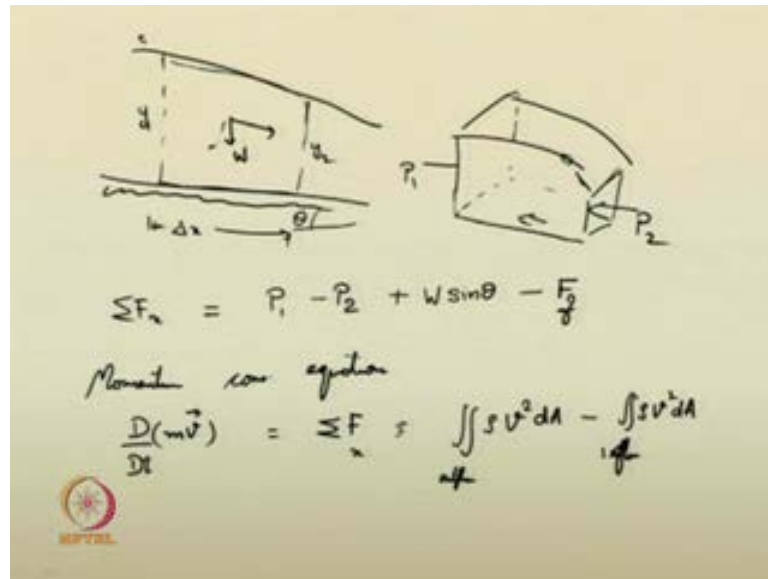 y
W
y₂
θ
Δx
P₁
P₂
ΣFₓ = P₁ - P₂ + W sinθ - F
Momentum cons equation
D/Dt (mv⃗) = ΣFₓ = ∬ ρ v² dA - ∬ ρ v² dA
NPTEL